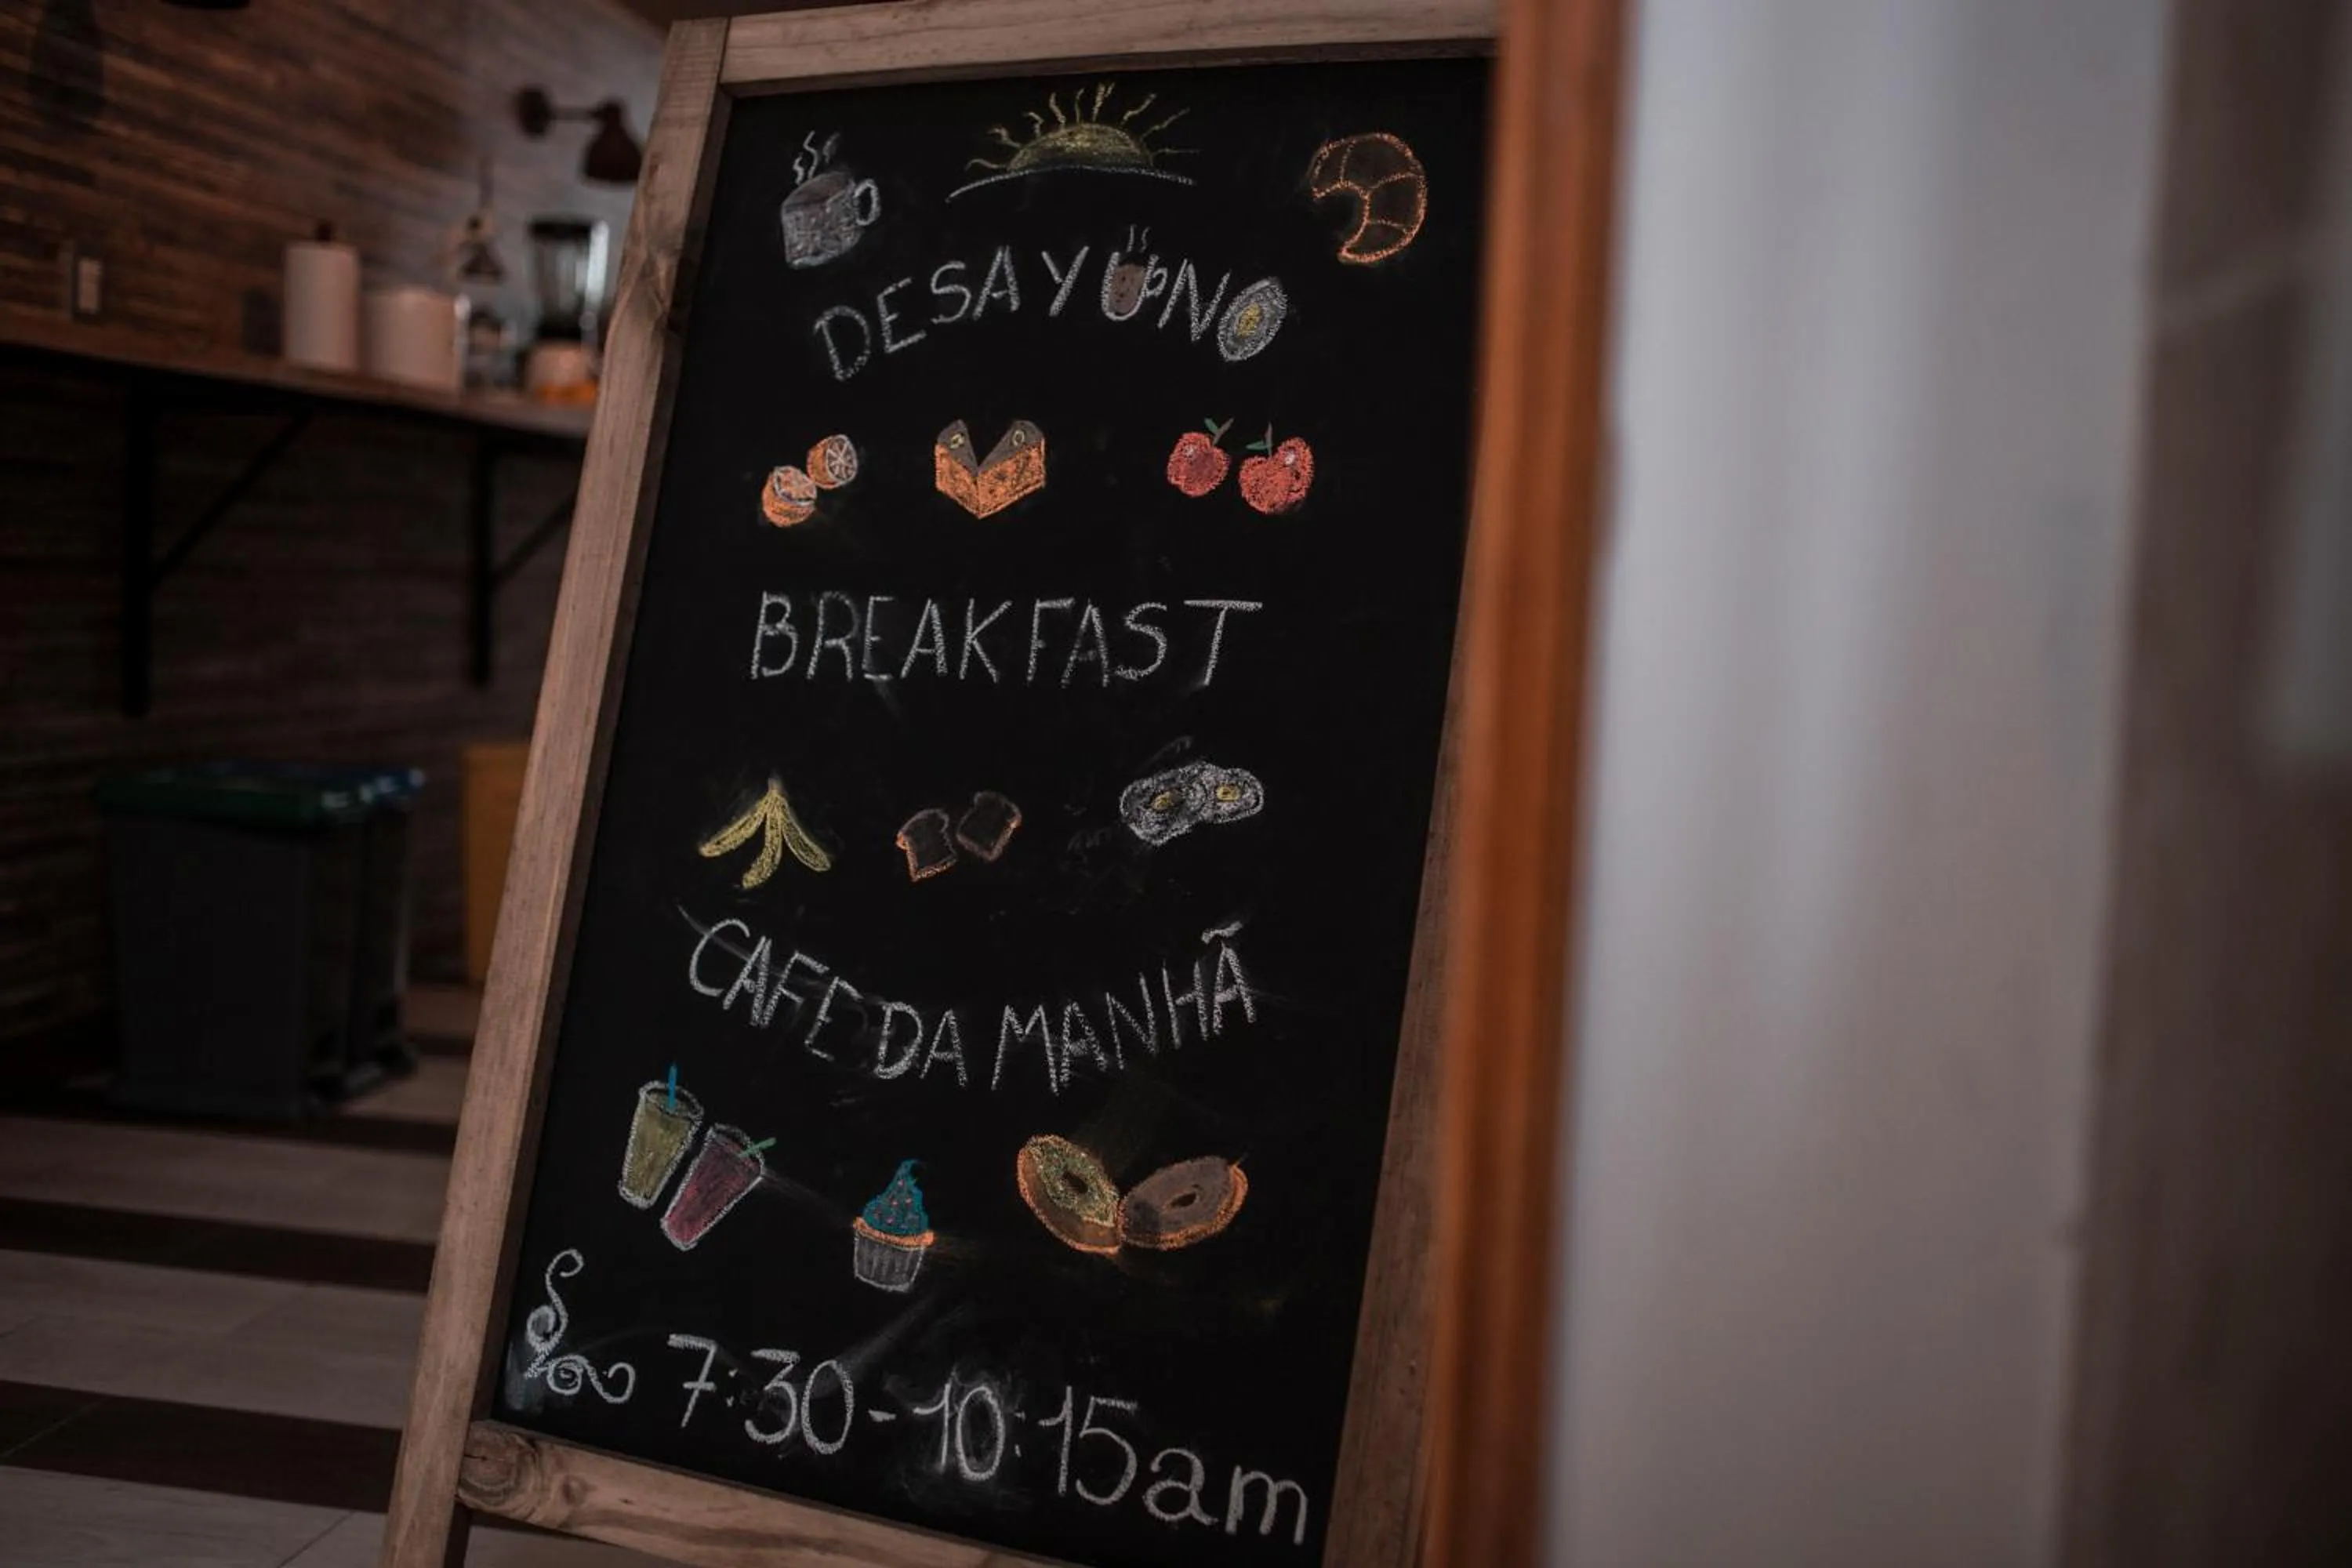 DESAYUNO
BREAKFAST
CAFE DA MANHÃ
7:30-10:15am